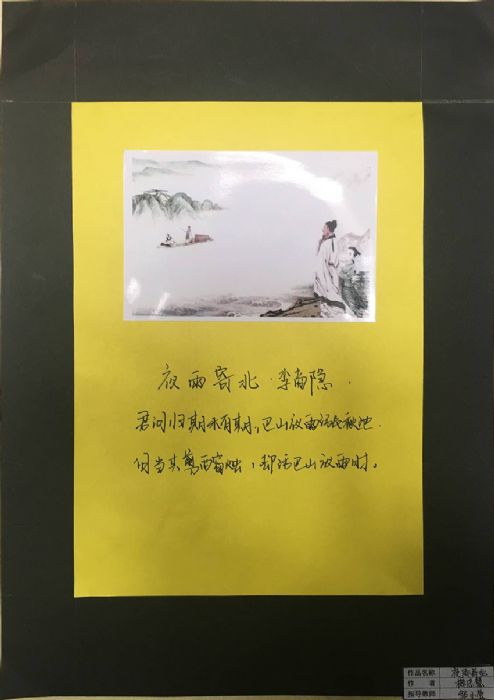 夜雨寄北·李商隐
君问归期未有期,巴山夜雨涨秋池.
何当共剪西窗烛,却话巴山夜雨时。
作品名称 夜雨寄北
作者
指导教师